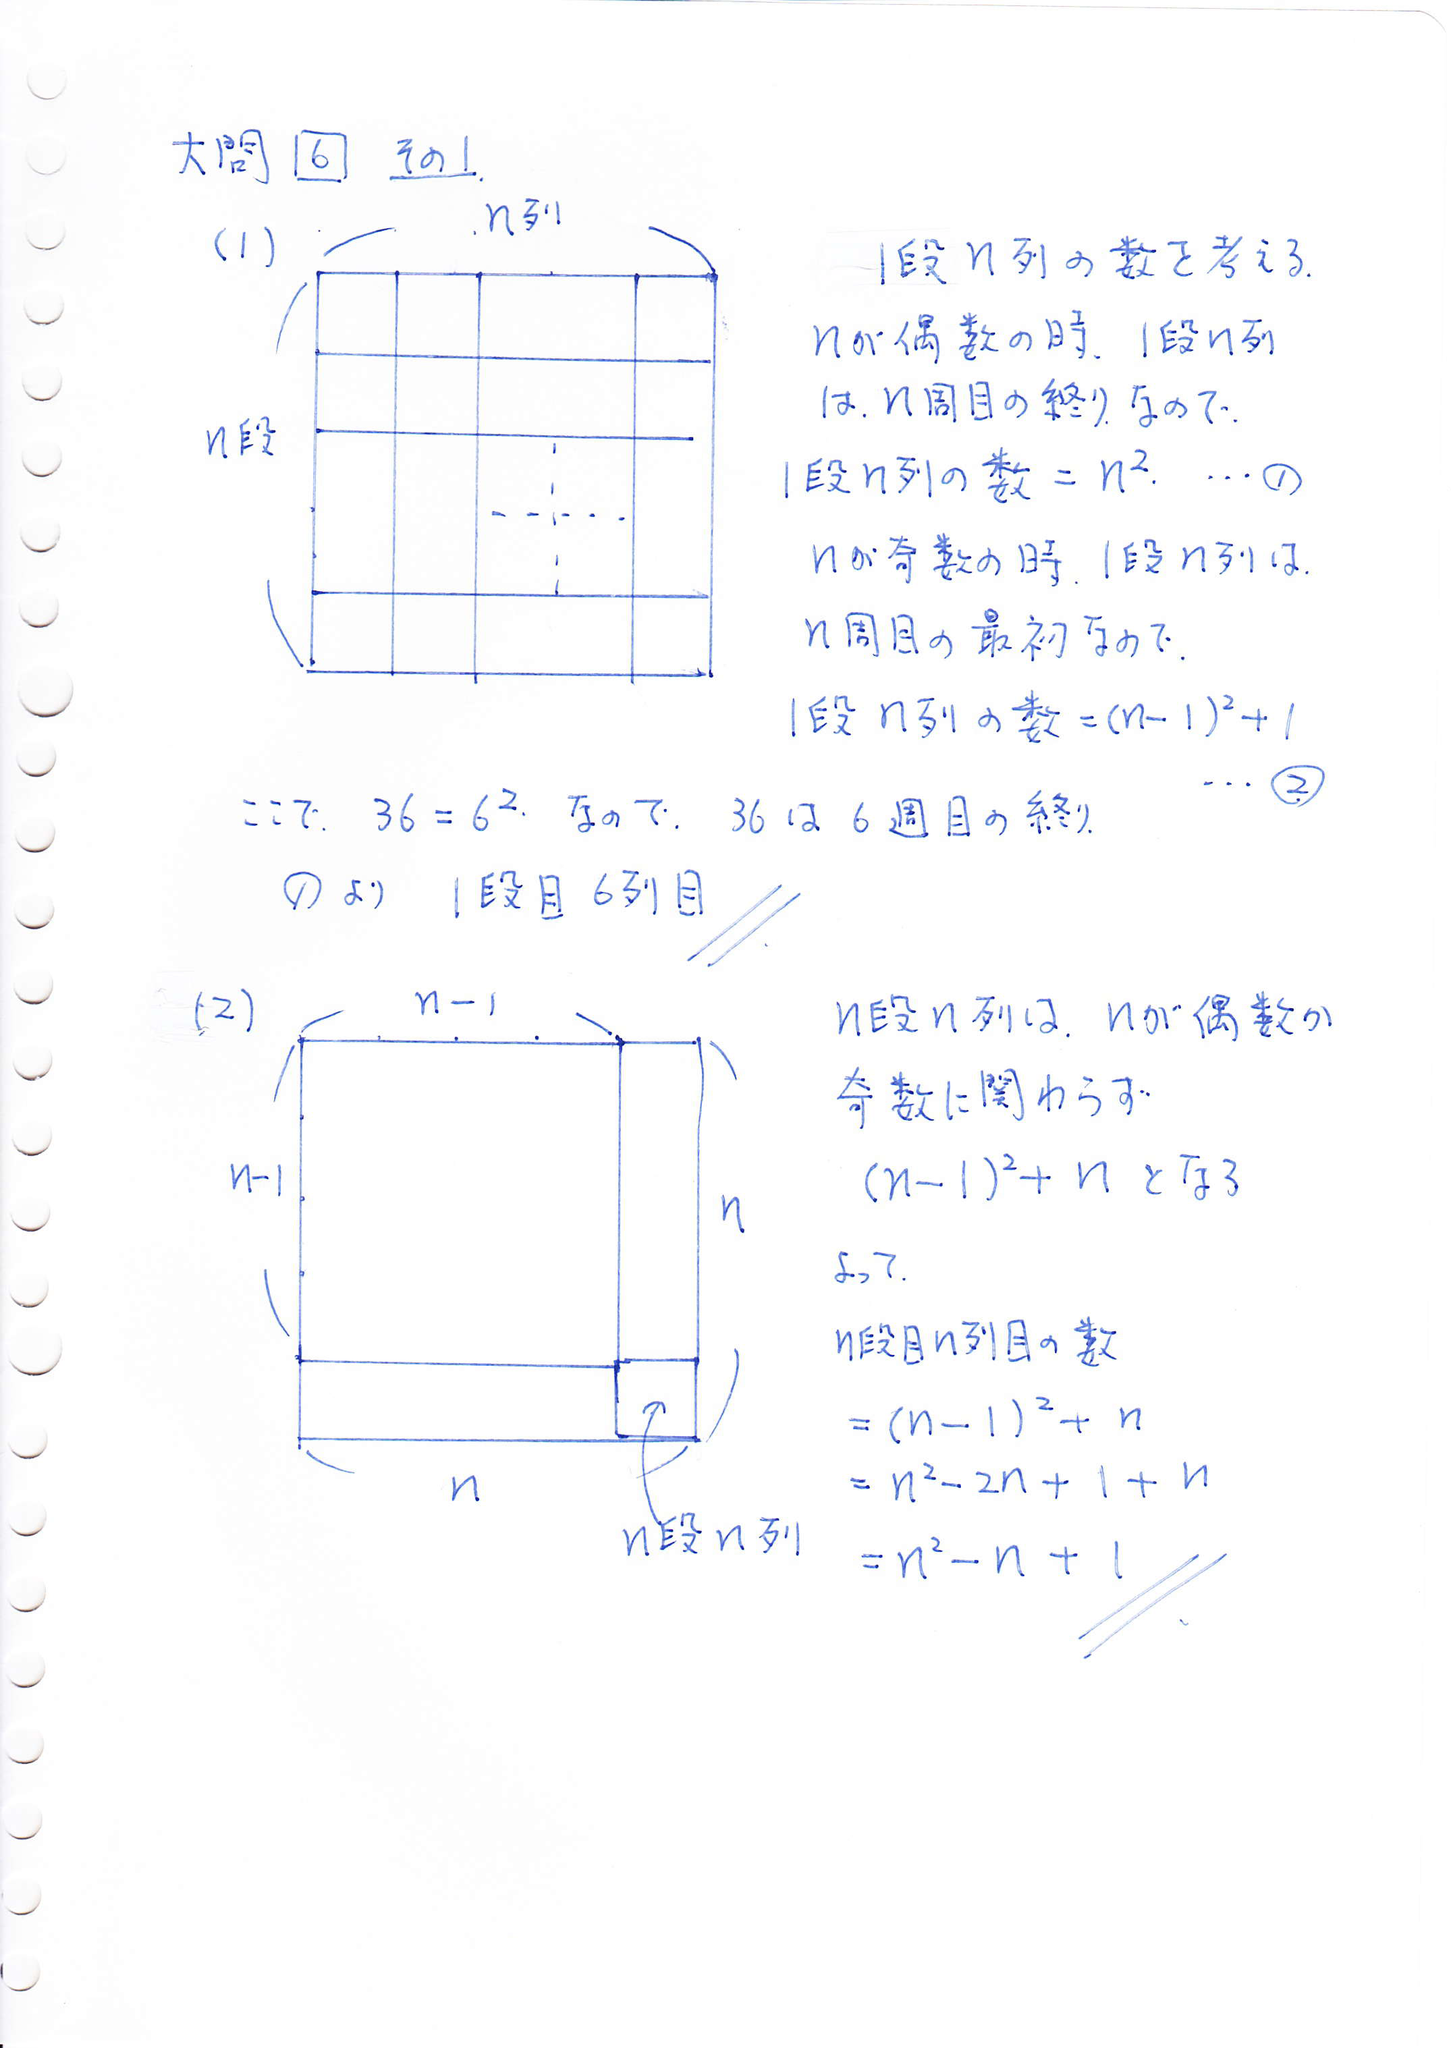 大問 6 その1
(1)
n列
n段
1段n列の数を考える.
nが偶数の時、1段n列
は、n周目の終りなので、
1段n列の数 = n². …①
nが奇数の時、1段n列は、
n周目の最初なので、
1段n列の数 = (n-1)² + 1
…②
ここで、36 = 6². なので、36は6週目の終り
①より 1段目6列目
(2)
n-1
n-1
n
n
n段n列
n段n列は、nが偶数か
奇数に関わらず
(n-1)² + n となる
よって、
n段目n列目の数
= (n-1)² + n
= n² - 2n + 1 + n
= n² - n + 1